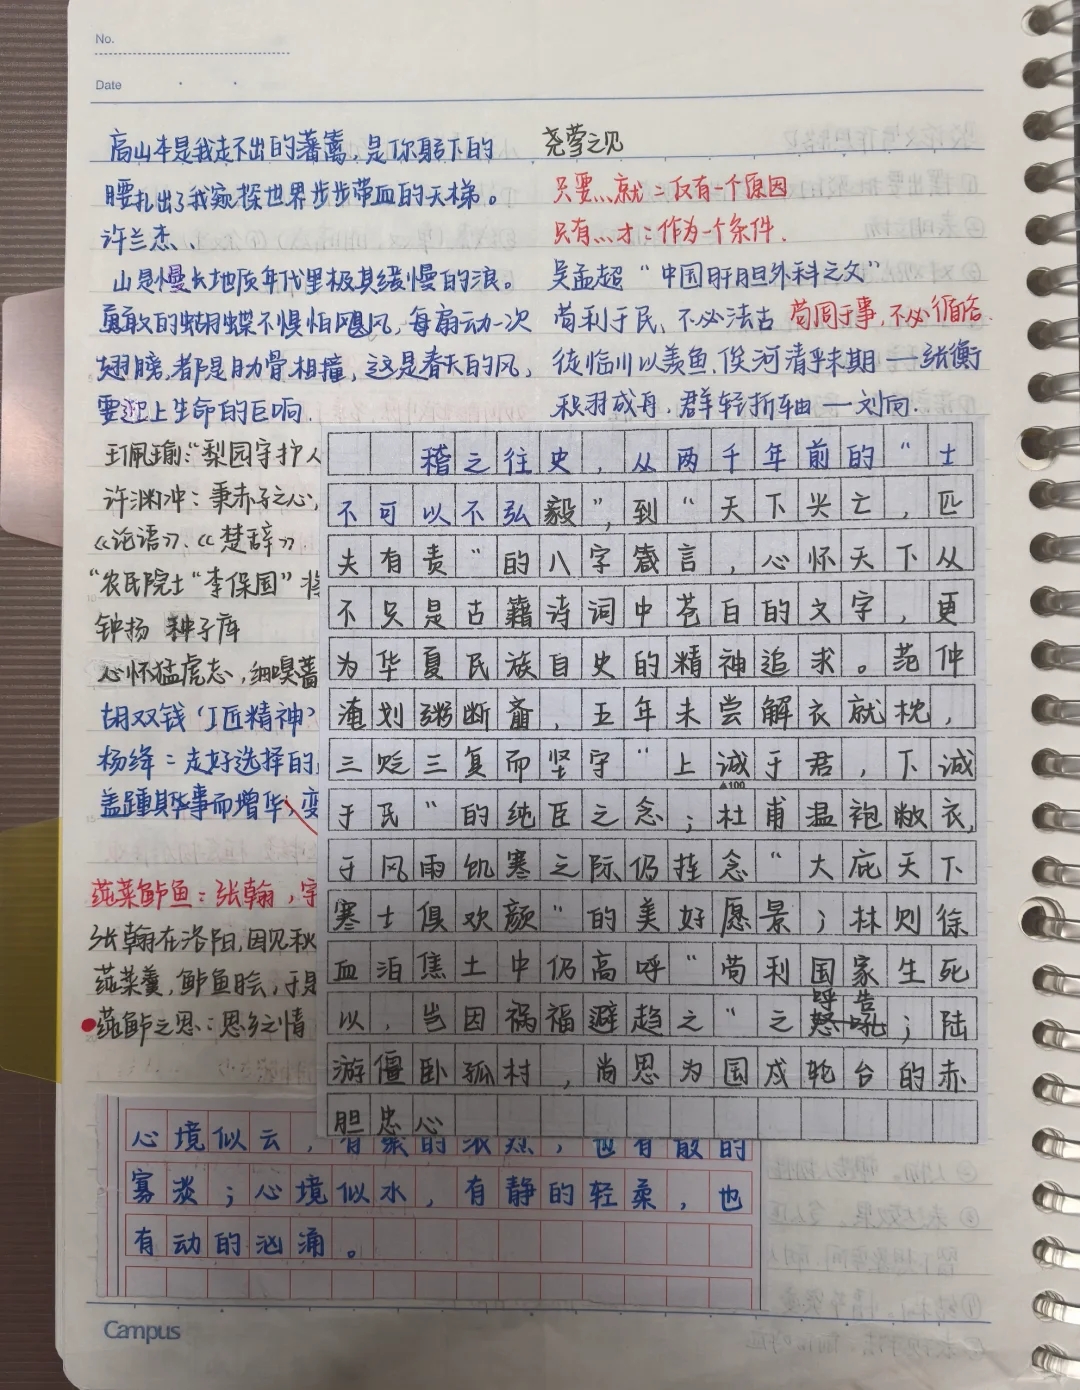 No.
Date
高山本是我走不出的藩篱，是你躬下的
腰扎出了我窥探世界步步带血的天梯。
许兰杰、
山是慢长地质年代里极其缓慢的浪。
勇敢的蝴蝶不惧怕飓风，每扇动一次
翅膀，都是肋骨相撞，这是春天的风，
要迎上生命的巨响.
王佩瑜:“梨园守护人
许渊冲：秉赤子之心,
《论语》、《楚辞》.
“农民院士“李保国”
钟扬 种子库
心怀猛虎志，细嗅蔷
胡双钱‘工匠精神’
杨绛：走好选择的
盖踵其华事而增华,变
莼菜鲈鱼：张翰，
张翰在洛阳,因见秋
莼菜羹，鲈鱼脍，于是
莼鲈之思：思乡之情
刍荛之见
只要…就：仅有一个原因
只有…才：作为一个条件.
吴孟超“中国肝胆外科之父”
苟利于民、不必法古 苟周于事,不必循旧.
徒临川以羡鱼,俟河清乎未期——张衡
积羽成舟，群轻折轴——刘向.
稽之往史，从两千年前的“士
不可以不弘毅”，到“天下兴亡，匹
夫有责”的八字箴言，心怀天下从
不只是古籍诗词中苍白的文字，更
为华夏民族自史的精神追求。范仲
淹划粥断齑，五年未尝解衣就枕，
三贬三复而坚守“上诚于君，下诚
▲100
于民”的纯臣之念；杜甫温袍敝衣，
于风雨饥寒之际仍挂念“大庇天下
寒士俱欢颜”的美好愿景；林则徐
血泊焦土中仍高呼“苟利国家生死
呼告
以，岂因祸福避趋之“之怒吼；陆
游僵卧孤村，尚思为国戍轮台的赤
胆忠心
心境似云，有聚的浓烈，也有散的
寡淡；心境似水，有静的轻柔，也
有动的汹涌。
Campus